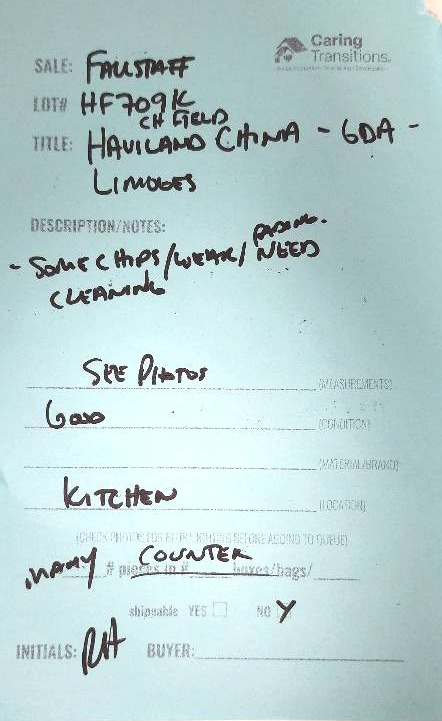 Caring
Transitions.
SALE: FALLSTAFF
LOT# HF709K
CH FIELD
TITLE: HAVILAND CHINA - GDA -
LIMOGES
DESCRIPTION/NOTES:
- SOME CHIPS/WEAR/FADING.
NEED
CLEANING
SEE PHOTOS (MEASUREMENTS)
GOOD (CONDITION)
(MATERIAL/BRAND)
KITCHEN (LOCATION)
BEFORE ADDING TO QUEUE)
MANY # pieces in # COUNTER boxes/bags/
shipeable YES NO Y
INITIALS: RH BUYER: